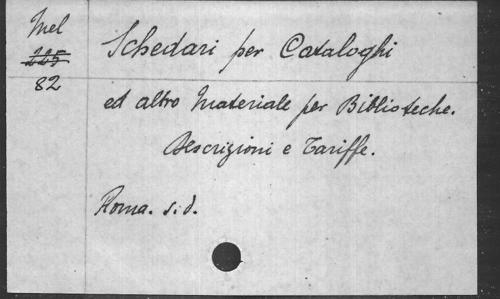 Mel
82
Schedari per Cataloghi
ed altro Materiale per Biblioteche.
Descrizioni e Tariffe.
Roma. s. d.